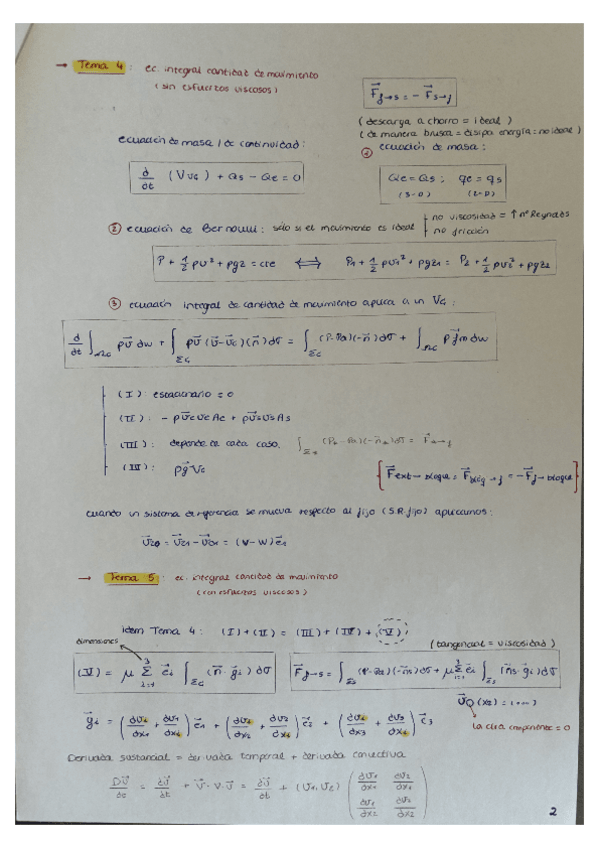 → Tema 4: ec. integral cantidad de movimiento
(sin esfuerzos viscosos)
F⃗f→s = - F⃗s→f
(descarga a chorro = ideal)
(de manera brusca = disipa energía: no ideal)
ecuación de masa / de continuidad:
① ecuación de masa:
d/dt (V_VC) + Qs - Qe = 0
Qe = Qs ; qe = qs
(3-D) (2-D)
② ecuación de Bernoulli: sólo si el movimiento es ideal
no viscosidad = ↑ nº Reynolds
no fricción
P + 1/2 ρv² + ρgz = cte ⟺ P1 + 1/2 ρv1² + ρgz1 = P2 + 1/2 ρv2² + ρgz2
③ ecuación integral de cantidad de movimiento aplica a un Vc:
d/dt ∫Ωc ρv⃗ dω + ∫Σc ρv⃗ (v⃗-v⃗c)(n⃗) dσ = ∫Σc (P-Pa)(-n⃗) dσ + ∫Ωc ρ f⃗m dω
(I): estacionario = 0
(II): - ρv⃗e ve Ae + ρv⃗s vs As
(III): depende de cada caso.
(IV): ρg⃗ Vc
{F⃗ext→bloque = F⃗bloq→f = -F⃗f→bloque}
cuando un sistema de referencia se mueva respecto al fijo (S.R. fijo) aplicamos:
→ Tema 5: ec. integral cantidad de movimiento
(con esfuerzos viscosos)
idem Tema 4: (I) + (II) = (III) + (IV) + (V)
dimensiones
(tangencial = viscosidad)
(V) = μ Σ³ᵢ₌₁ e⃗i ∫Σc (n⃗ · g⃗i) dσ
F⃗f→s = ∫Σs (P-Pa)(-n⃗s) dσ + μ Σ³ᵢ₌₁ e⃗i ∫Σs (n⃗s · g⃗i) dσ
La otra componente = 0
Derivada sustancial = derivada temporal + derivada convectiva
2